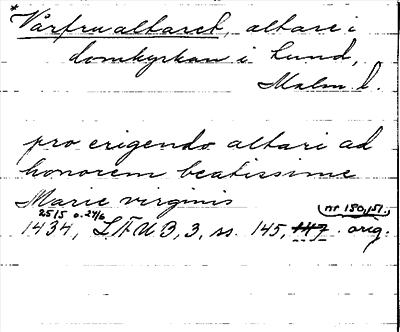 *Vårfrualtaret, altare i
domkyrkan i Lund,
Malm l.
pro erigendo altari ad
honorem beatissime
Marie virginis
25/5 o. 27/6 nr 150, 151.
1434, LÄUB, 3, ss 145, 147. orig.